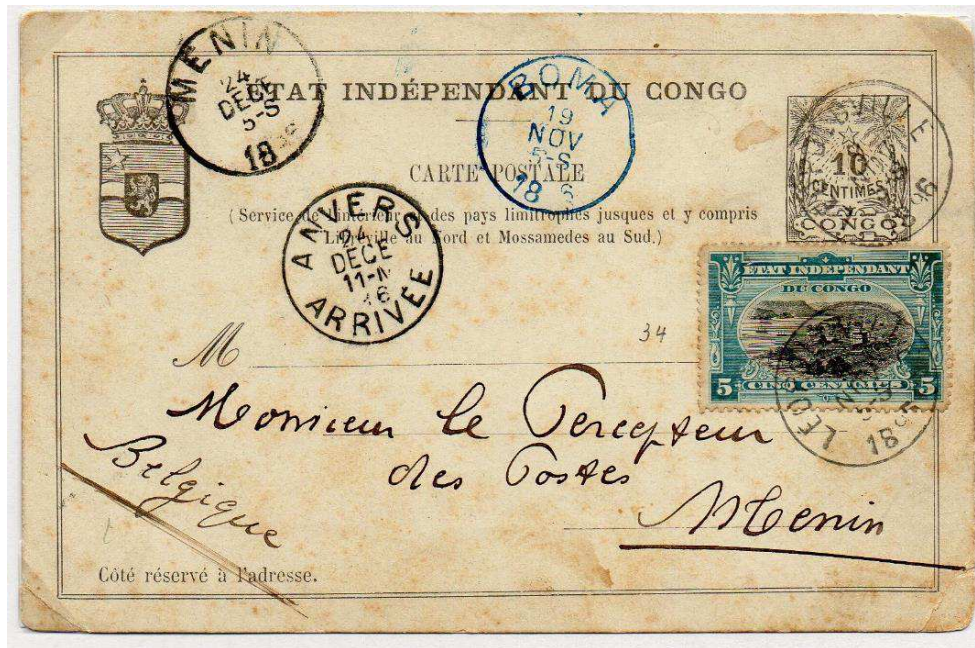 MENIN
24
DECE
5-S
18
ÉTAT INDÉPENDANT DU CONGO
BOMA
19
NOV
5-S
18 6
CARTE POSTALE
(Service de l'intérieur et des pays limitrophes jusques et y compris
Libreville au Nord et Mossamedes au Sud.)
10
CENTIMES
CONGO
ANVERS
24
DECE
11-M
ARRIVÉE
ÉTAT INDEPENDANT
DU CONGO
5 CINQ CENTIMES 5
LEO
18
34
M
Monsieur le Percepteur
des Postes
Belgique
Menin
Côté réservé à l'adresse.